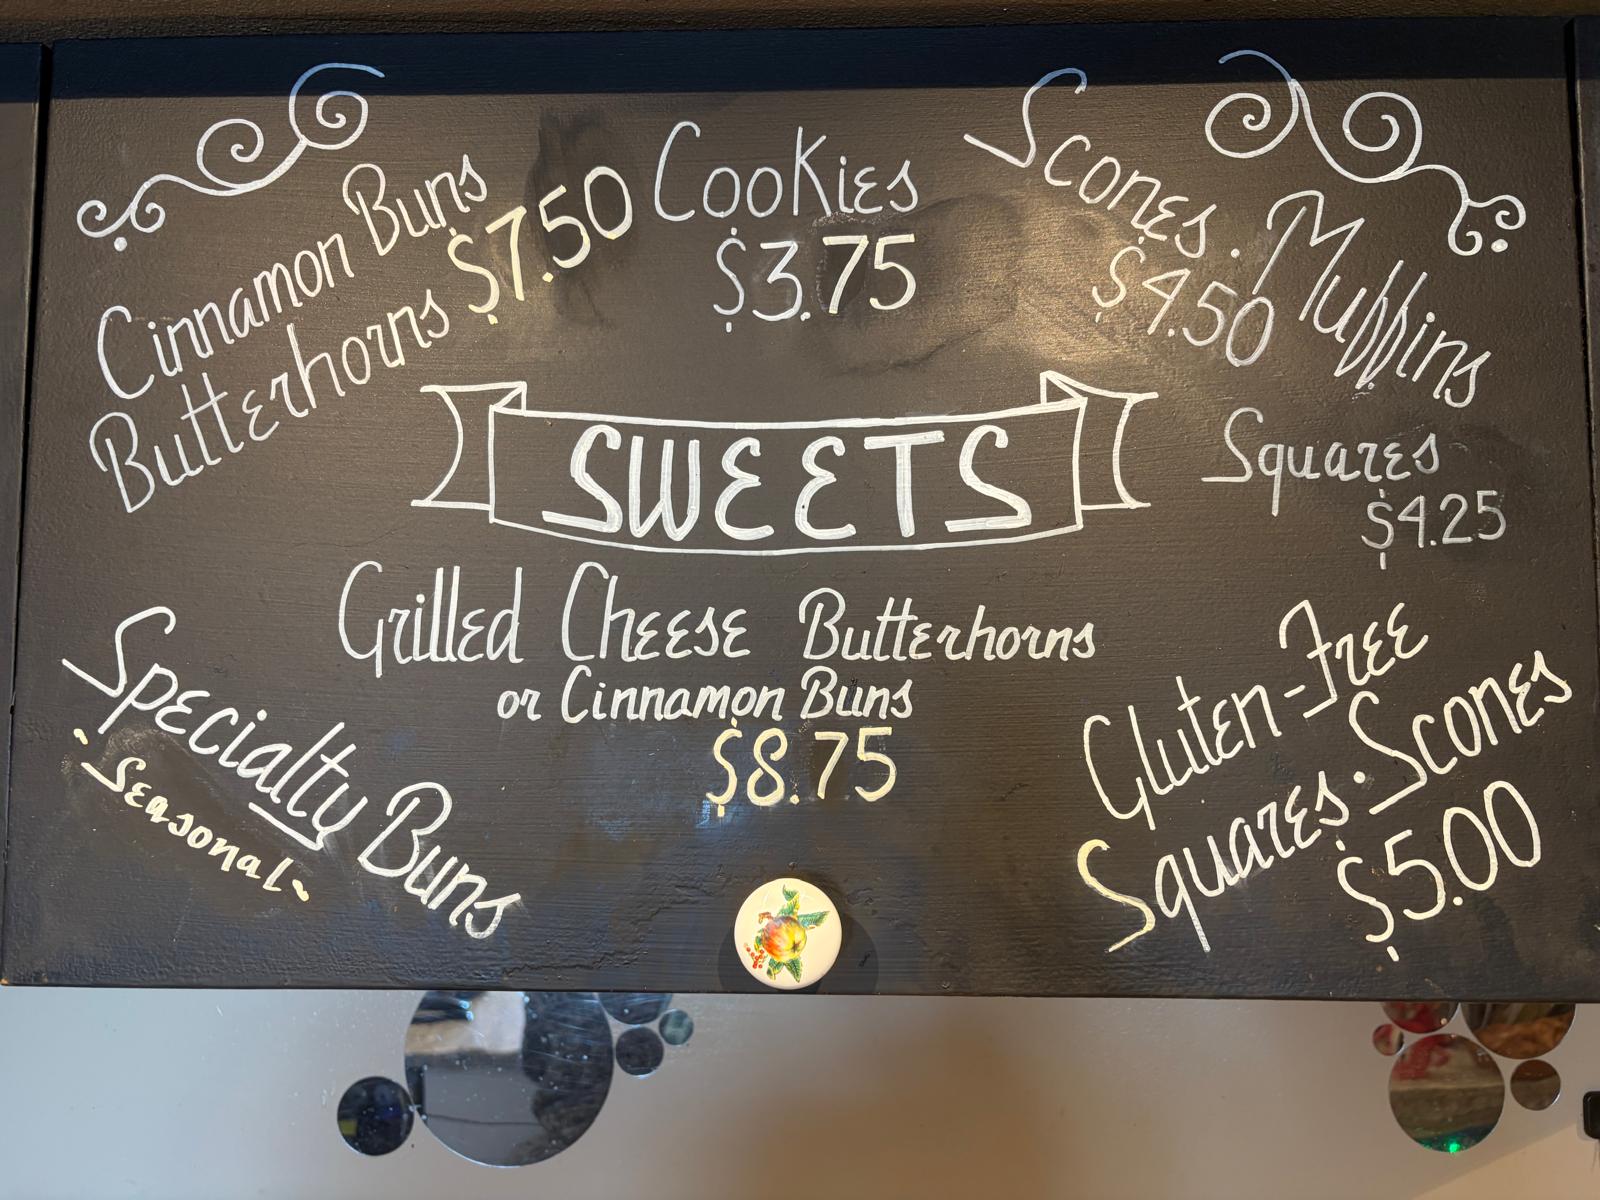 Cinnamon Buns
Butterhorns $7.50
Cookies
$3.75
Scones · Muffins
$4.50
SWEETS
Squares
$4.25
Grilled Cheese Butterhorns
or Cinnamon Buns
$8.75
Specialty Buns
~ Seasonal ~
Gluten-Free
Squares · Scones
$5.00